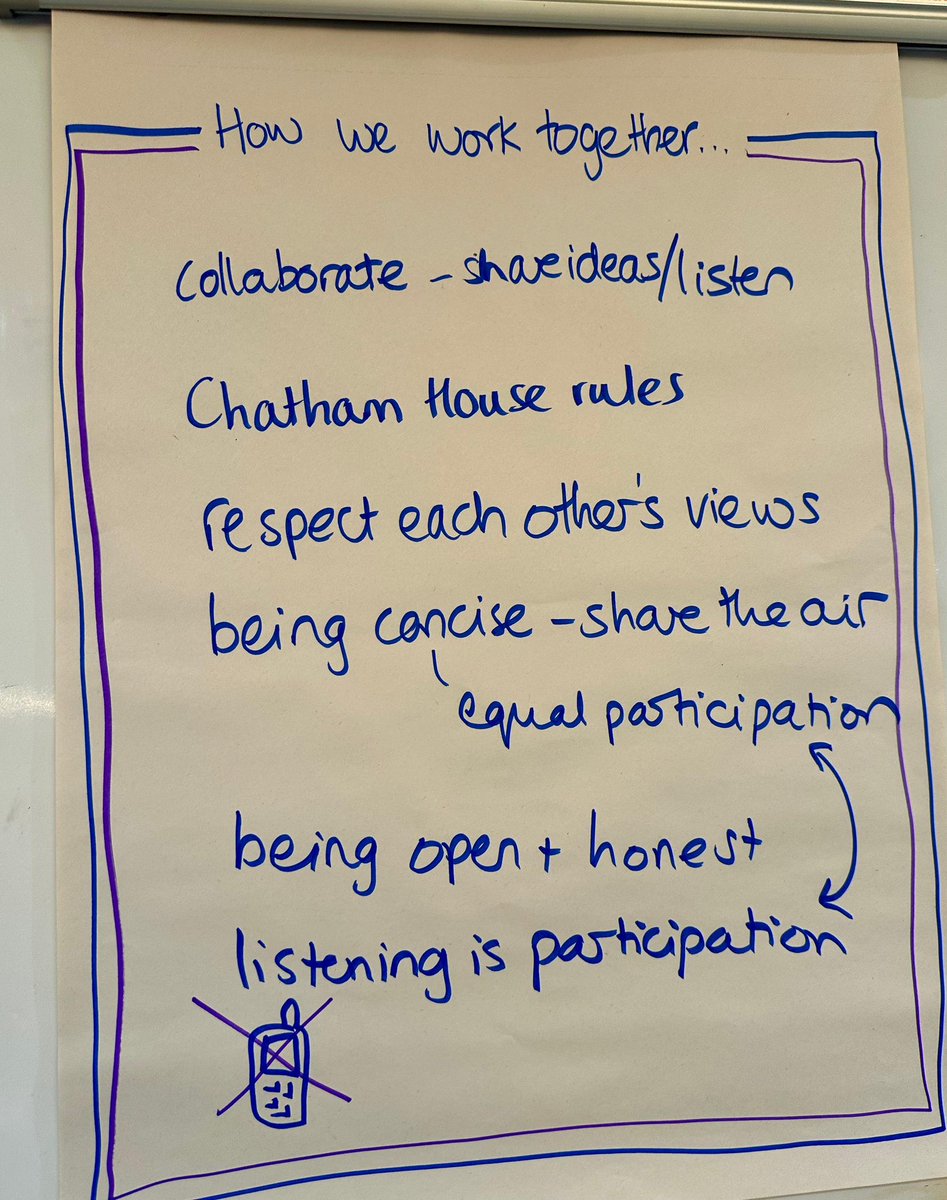 How we work together...
collaborate - share ideas/listen
Chatham House rules
respect each other's views
being concise - share the air
equal participation
being open + honest
listening is participation